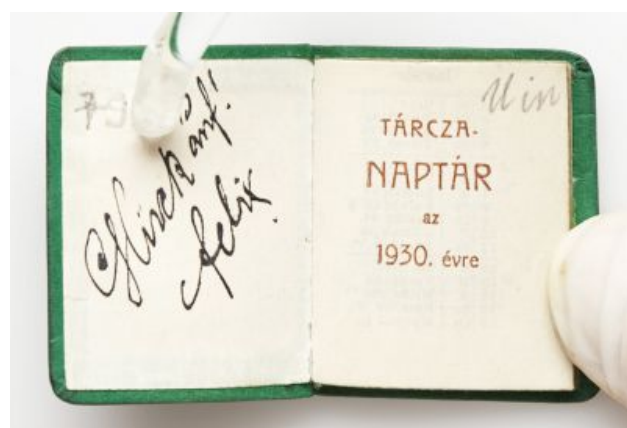 Glück auf!
Felix.
TÁRCZA-
NAPTÁR
az
1930. évre